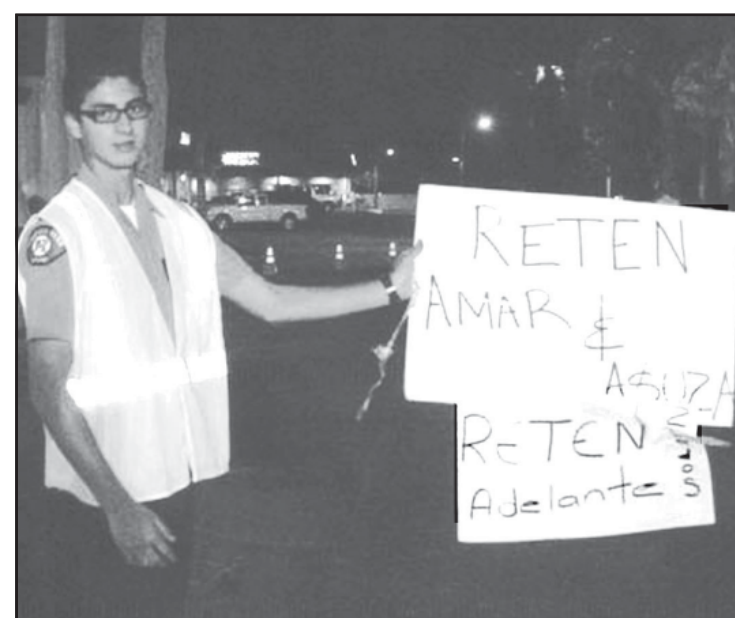 RETEN
AMAR &
ASUZA
RETEN
Adelante